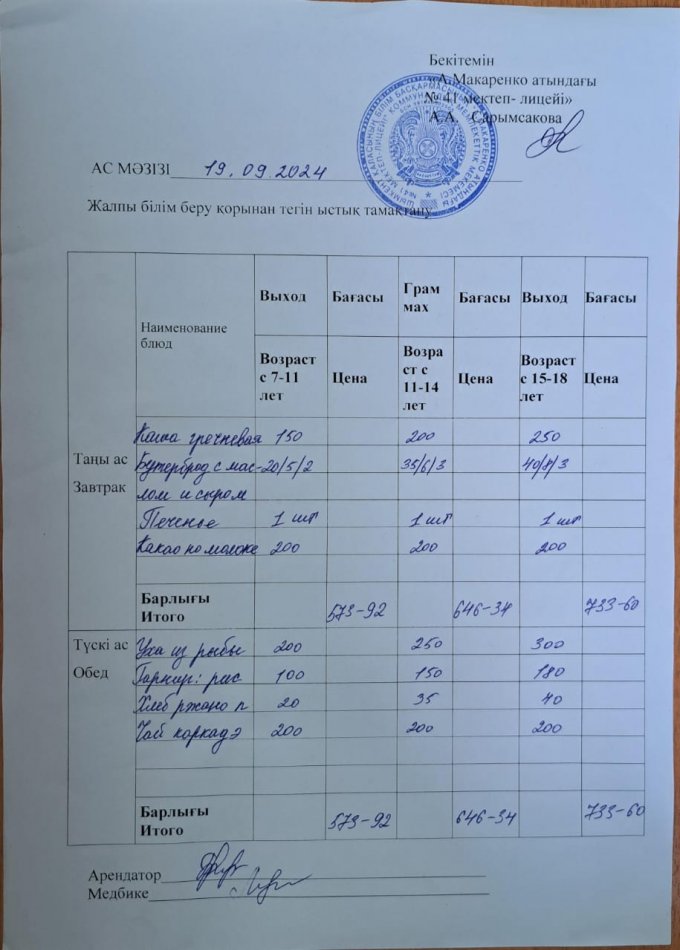 Бекітемін
«А.Макаренко атындағы
№ 41 мектеп- лицейі»
А.А. Сарымсакова
АС МӘЗІЗІ 19.09.2024
Жалпы білім беру қорынан тегін ыстық тамақтану
Наименование блюд Выход Бағасы Грам мах Бағасы Выход Бағасы
Возраст с 7-11 лет Цена Возра ст с 11-14 лет Цена Возраст с 15-18 лет Цена
Таңы ас
Завтрак
Каша гречневая 150 200 250
Бутерброд с мас- 20/5/2 35/6/3 40/8/3
лом и сыром
Печенье 1 шт 1 шт 1 шт
Какао на молоке 200 200 200
Барлығы Итого 573-92 646-34 733-60
Түскі ас
Обед
Уха из рыбы 200 250 300
Гарнир: рис 100 150 180
Хлеб ржано п 20 35 40
Чай каркадэ 200 200 200
Барлығы Итого 573-92 646-34 733-60
Арендатор
Медбике